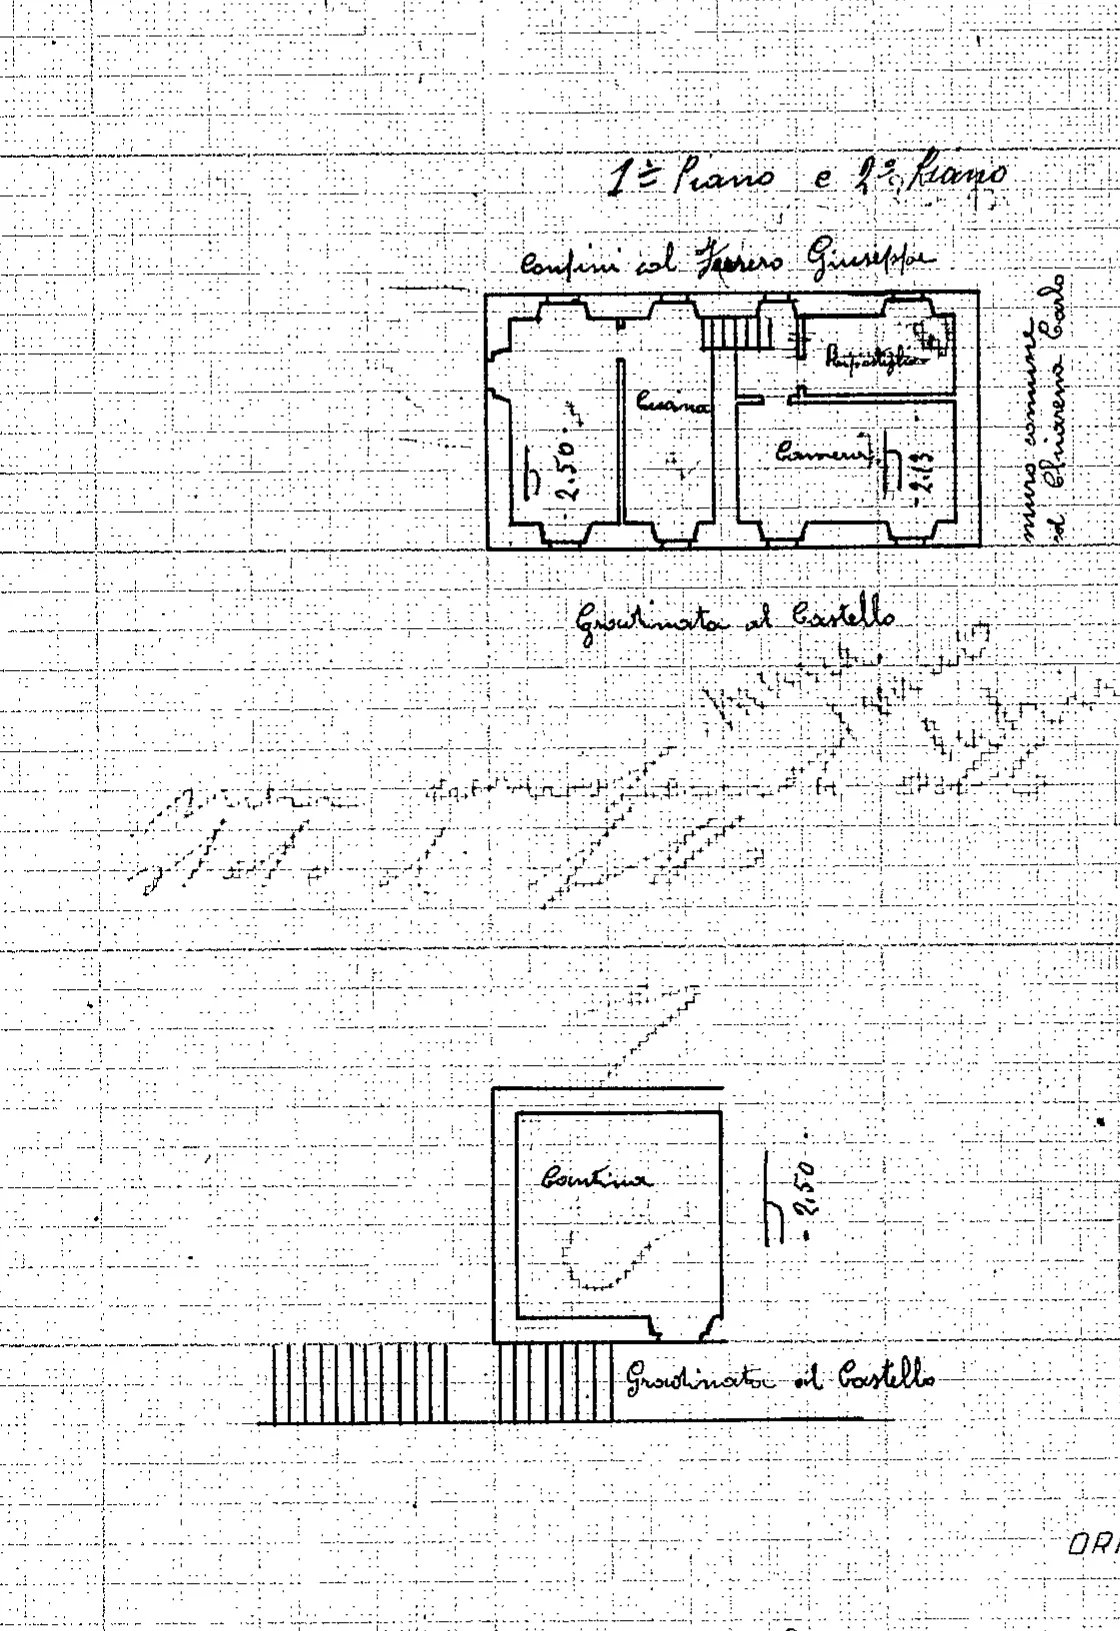 1º Piano e 2º Piano
Confini col Ferrero Giuseppe
muro comune
al Chiarena Carlo
Ripostiglio
Cucina
Camera
-2.50-
-2.13-
Gradinata al Castello
Cantina
-2,50-
Gradinata al Castello
ORI